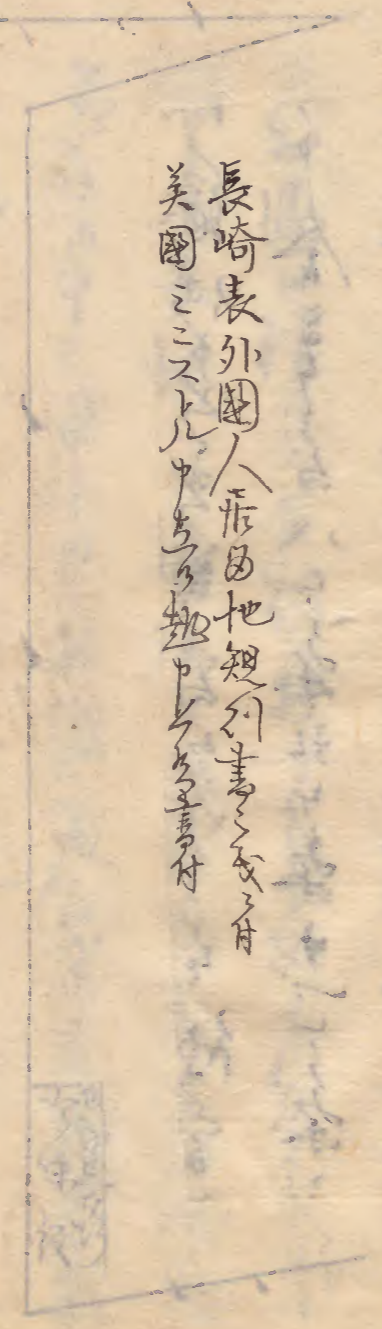 長崎表外國人居留地規則書之義ニ付
美國ミニストル申立候趣申上候書付